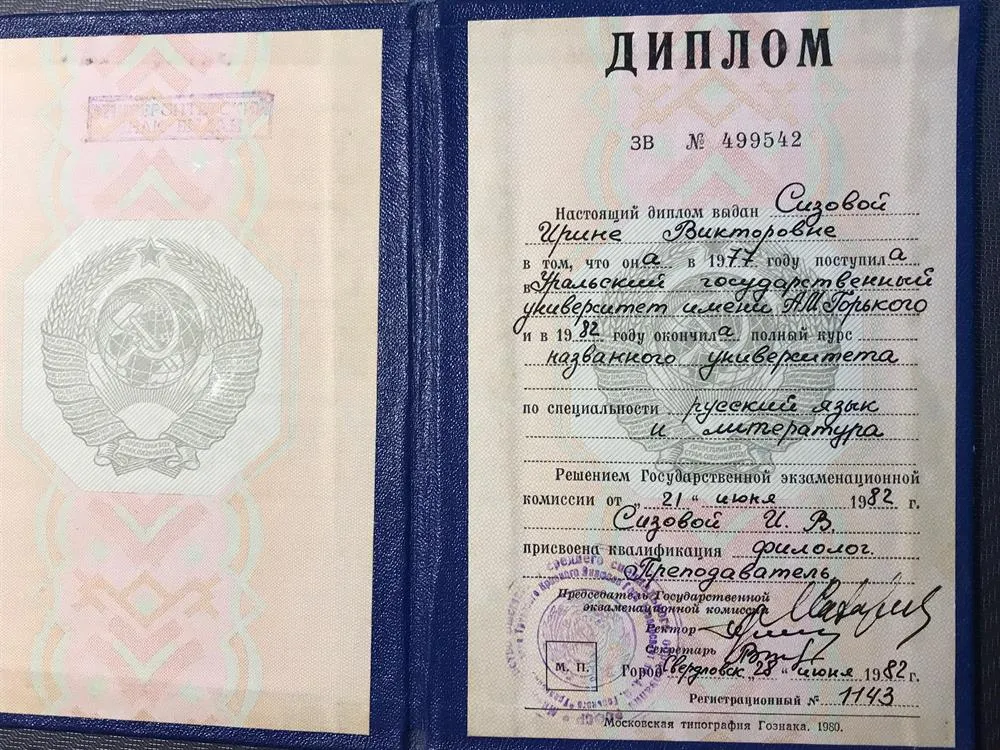 ДИПЛОМ
ЗВ № 499542
Настоящий диплом выдан Сизовой
Ирине Викторовне
в том, что она в 1977 году поступила
в Уральский государственный
университет имени А.М.Горького
и в 1982 году окончила полный курс
названного университета
по специальности русский язык
и литература
Решением Государственной экзаменационной
комиссии от „21“ июня 1982 г.
Сизовой И. В.
присвоена квалификация филолог.
Преподаватель
Председатель Государственной
экзаменационной комиссии
Ректор
Секретарь
М. П.
Город Свердловск, 28 “ июня 1982 г.
Регистрационный № 1143
Московская типография Гознака. 1980.